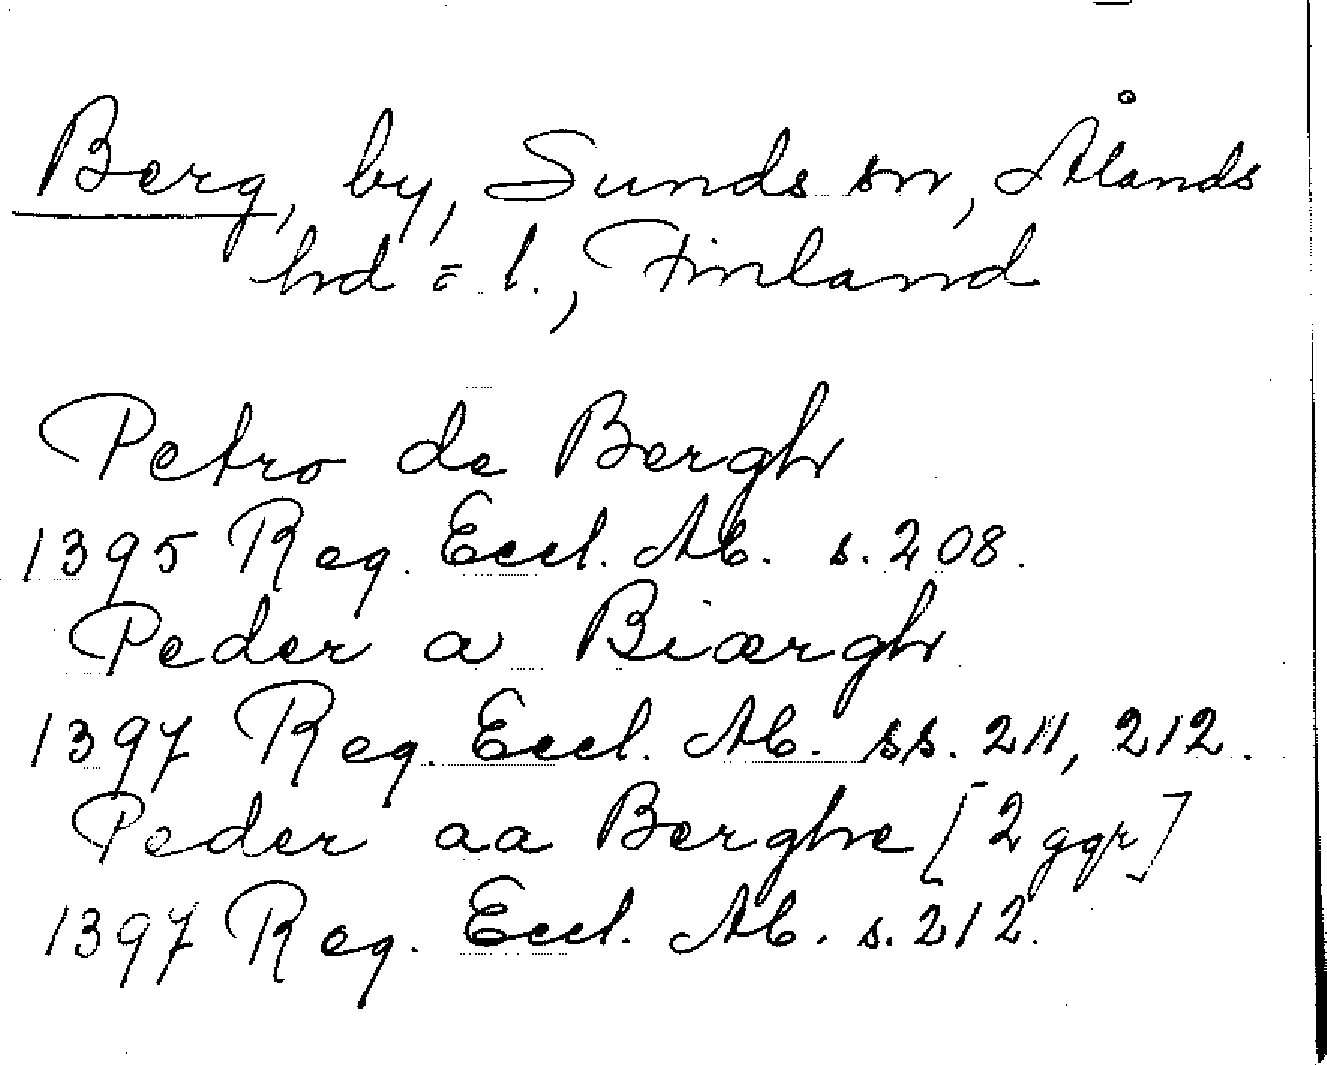 Berg, by, Sunds sn, Ålands
hd = l., Finland
Petro de Bergh
1395 Reg. Eccl. Ab. s. 208.
Peder a Biærgh
1397 Reg. Eccl. Ab. ss. 211, 212.
Peder aa Berghe [2 ggr]
1397 Reg. Eccl. Ab. s. 212.